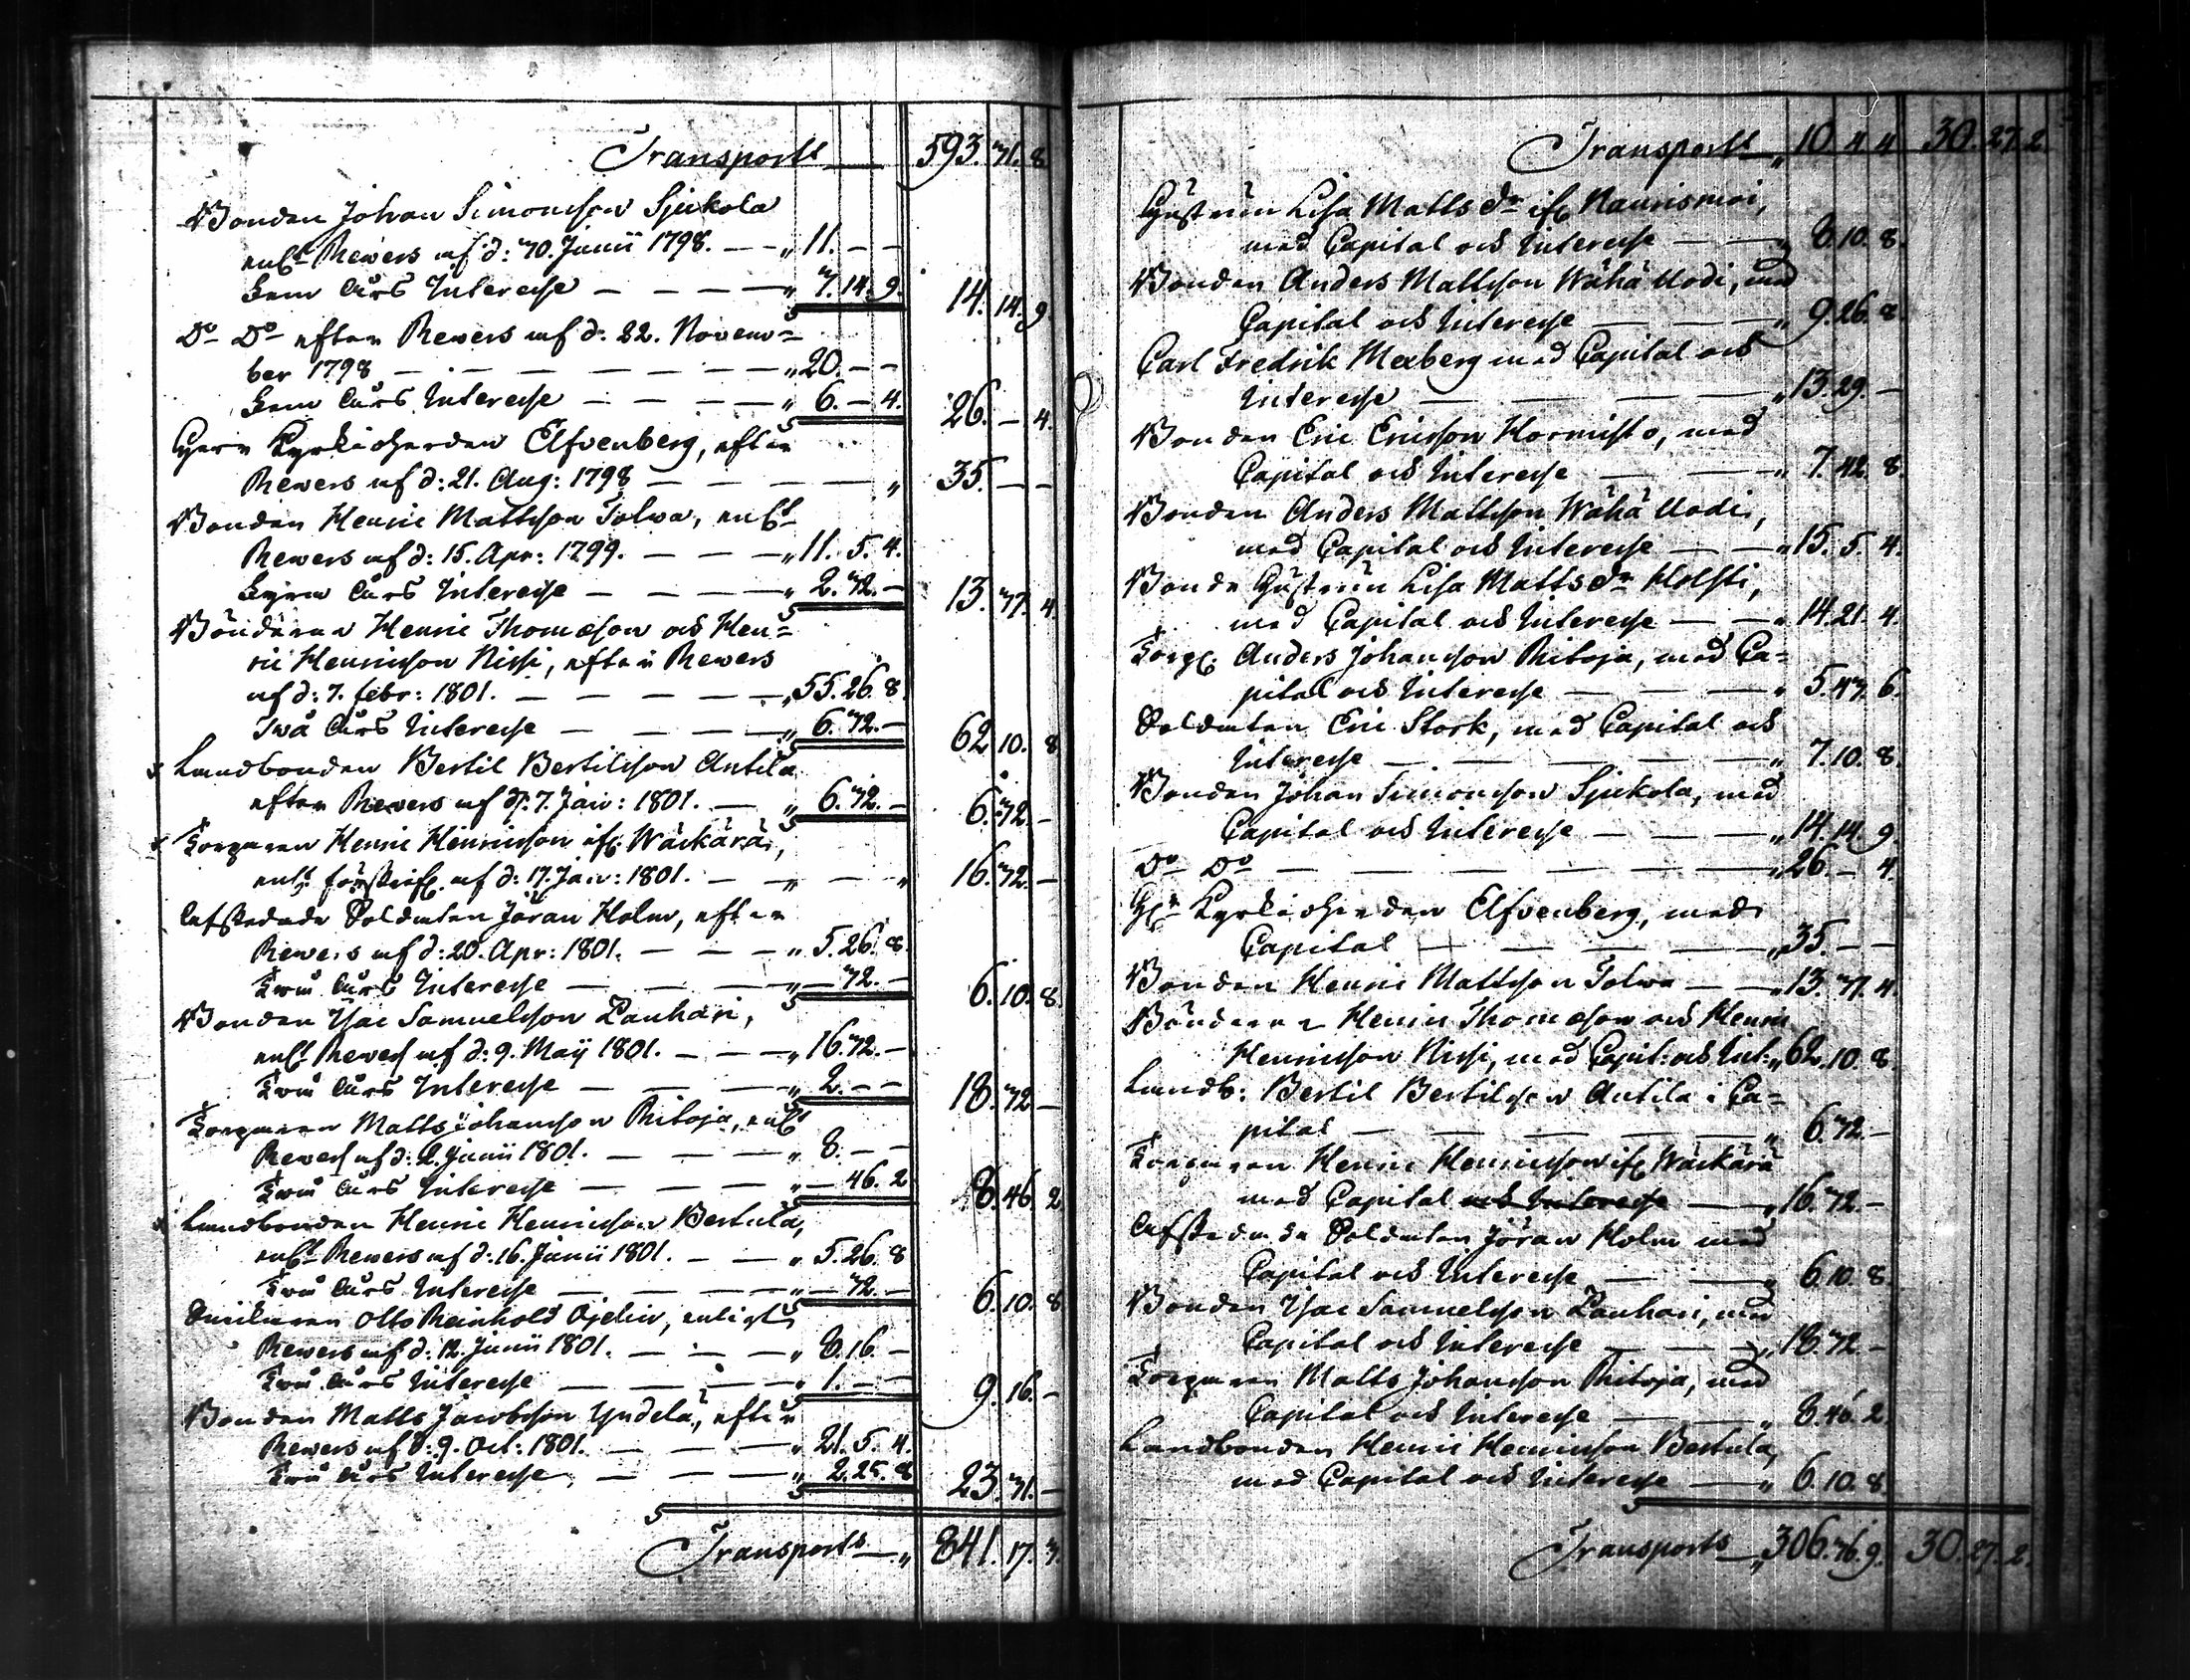 Transport — 593. 31. 8
Bonden Johan Simonsson Sjukola
enl:t Revers af d: 30. Junii 1798. — — „ 11. — —
Fem Års Interesse — — — — „ 3. 14. 9. 14. 14. 9.
D:o D:o efter Revers af d: 22. Novem=
ber 1798 — — — — — — „ 20. — —
Fem Års Interesse — — — — „ 6. — 4. 26. — 4.
Herr Kyrkioherden Elfvenberg, efter
Revers af d: 21. Aug: 1798 — — — — „ 35. — —
Bonden Henric Mattsson Tolva, enl:t
Revers af d: 15. Apr: 1799. — — — „ 11. 5. 4.
Fyra Års Interesse — — — — „ 2. 32. — 13. 37. 4.
Bönderne Henric Thomæson och Hen=
ric Henricsson Nissi, efter Revers
af d: 7. febr: 1801. — — — — — „ 55. 26. 8.
Två Års Interesse — — — — „ 6. 32. — 62. 10. 8
Landbonden Bertil Bertilsson Antila
efter Revers af d: 7. Jan: 1801. — „ 6. 32. — 6. 32. —
Torparen Henric Henricsson if: Wäckärä,
enl:t förskrif: af d: 17. Jan: 1801. — „ — „ 16. 32. —
Afskedade Soldaten Jöran Holm, efter
Revers af d: 20. Apr: 1801. — — — „ 5. 26. 8.
Två Års Interesse — — — — „ — 32. — 6. 10. 8.
Bonden Isac Samuelsson Lanhari,
enl:t Revers af d: 9. Maij 1801. — — — „ 16. 32. —
Två Års Interesse — — — — „ 2. — — 18. 32. —
Torparen Matts Johansson Ritoja, enl:t
Revers af d: 2. Junii 1801. — — — „ 8. — —
Två Års Interesse — — — — „ — 46. 2 8. 46. 2
Landbonden Henric Henricsson Bertula,
enl:t Revers af d: 16. Junii 1801. — — „ 5. 26. 8
Två Års Interesse — — — — „ — 32. — 6. 10. 8
Otto Reinhold Ojelin, enligt
Revers af d: 12. Junii 1801. — — — „ 8. 16. —
Två Års Interesse — — — — „ 1. — — 9. 16. —
Bonden Matts Jacobsson Yndelä, efter
Revers af d: 9. Oct: 1801. — — — „ 21. 5. 4.
Två Års Interesse — — — „ 2. 25. 8 23. 31. —
Transport — „ 841. 17. 3.
Transport — „ 10. 4 4 30. 27. 2.
Hustrun Lisa Matts D:r if: Naurismäi,
med Capital och Interesse — — „ 8. 10. 8.
Bonden Anders Mattsson Wähä Uodi, med
Capital och Interesse — — — „ 9. 26. 8.
Carl Fredrik Mexberg med Capital och
Interesse — — — — „ 13. 29. —
Bonden Eric Ericsson Hormisto, med
Capital och Interesse — — — „ 7. 42. 8.
Bonden Anders Mattsson Wähä Uodi,
med Capital och Interesse — — „ 15. 5. 4.
Bonde Hustrun Lisa Matts D:r Holsti,
med Capital och Interesse — — „ 14. 21. 4.
Torp: Anders Johansson Ritoja, med Ca=
pital och Interesse — — — „ 5. 43. 6.
Soldaten Eric Stork, med Capital och
Interesse — — — — — „ 7. 10. 8.
Bonden Johan Simonsson Sjukola, med
Capital och Interesse — — — „ 14. 14. 9.
D:o D:o — — — — — „ 26. — 4.
H:r Kyrkioherden Elfvenberg, med
Capital — — — — „ 35. — —
Bonden Henric Mattsson Tolva — — „ 13. 37. 4.
Bönderne Henric Thomæson och Henric
Henricsson Nissi, med Capit: och Int: „ 62. 10. 8.
Landb: Bertil Bertilsson Antila i Ca=
pital — — — — — „ 6. 32. —
Torparen Henric Henricsson if: Wäckärä
med Capital och Interesse — „ 16. 32. —
Afskedade Soldaten Jöran Holm med
Capital och Interesse — — „ 6. 10. 8.
Bonden Isac Samuelsson Lanhari, med
Capital och Interesse — — „ 18. 32. —
Torparen Matts Johansson Ritoja, med
Capital och Interesse — — „ 8. 46. 2.
Landbonden Henric Henricsson Bertula,
med Capital och Interesse — „ 6. 10. 8.
Transport — „ 306. 36. 9. 30. 27. 2.